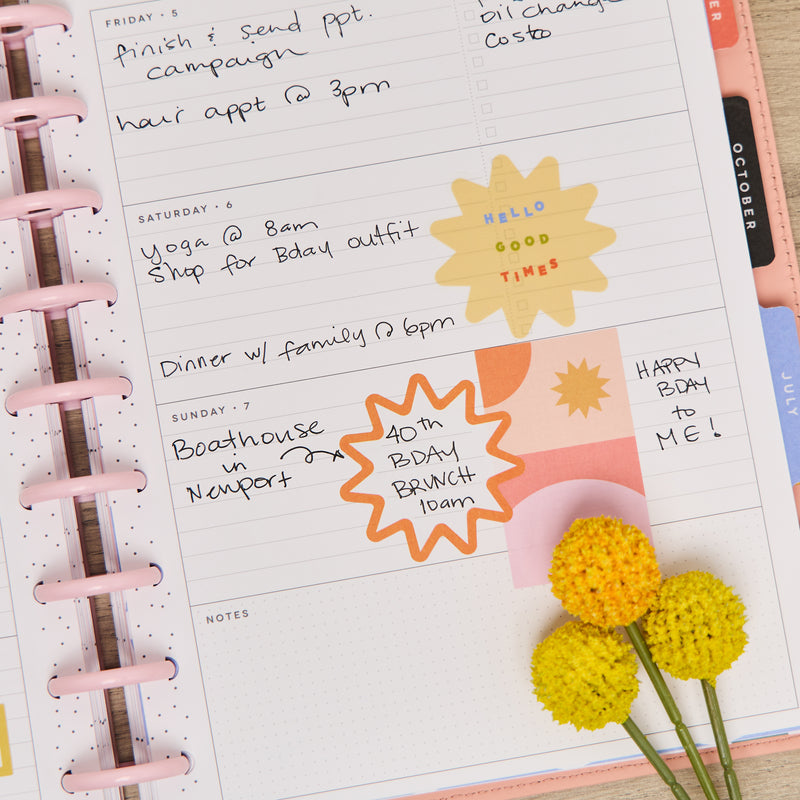 FRIDAY • 5
finish & send ppt.
campaign
hair appt @ 3pm
oil change
Costo
SATURDAY • 6
yoga @ 8am
Shop for Bday outfit
Dinner w/ family @ 6pm
HELLO
GOOD
TIMES
SUNDAY • 7
Boathouse
in
Newport
40th
BDAY
BRUNCH
10am
HAPPY
BDAY
to
ME!
NOTES
ER
OCTOBER
JULY